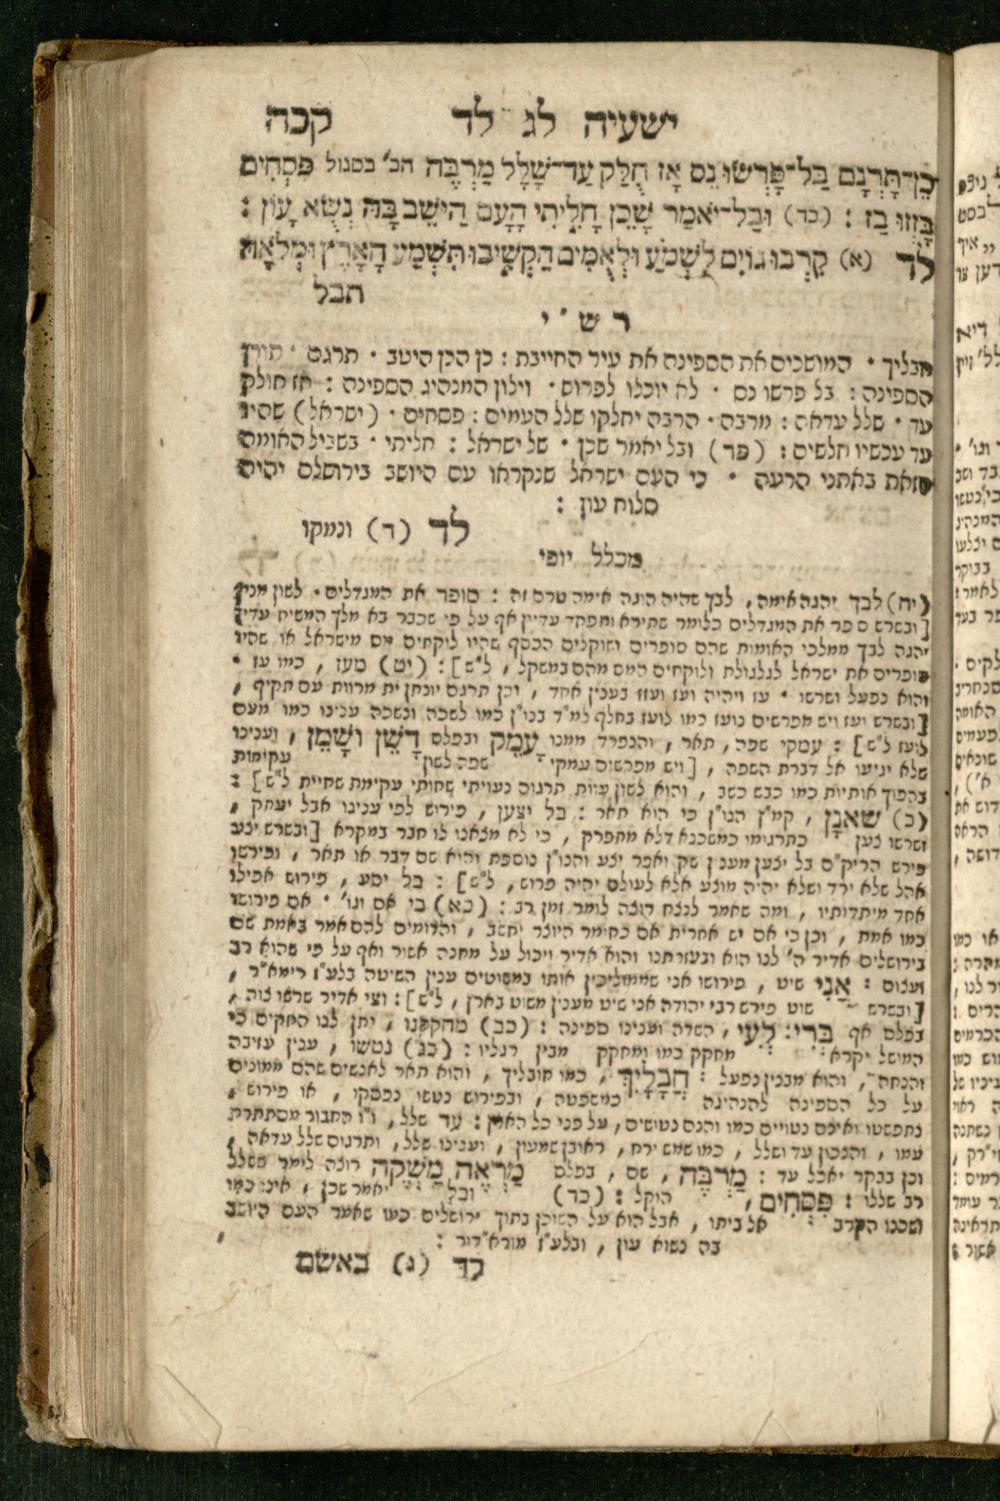 ישעיה לג לד קכה
כֵן־תָּרְנָם בַּל־פָּרְשׂוּ נֵס אָז חֻלַּק עַד־שָׁלָל מַרְבֶּה הב׳ בסגול פִּסְחִים
בָּזְזוּ בַז : (כד) וּבַל־יֹאמַר שָׁכֵן חָלִיתִי הָעָם הַיֹּשֵׁב בָּהּ נְשֻׂא עָוֹן :
לד (א) קִרְבוּ גוֹיִם לִשְׁמֹעַ וּלְאֻמִּים הַקְשִׁיבוּ תִּשְׁמַע הָאָרֶץ וּמְלֹאָהּ
תבל
ר ש ״ י
חבליך · המושכים את הספינה את עיר החייבת : כן הכן היטב · תרגם · תורן
הספינה : בל פרשו נס · לא יוכלו לפרוש · וילון המנהיג הספינה : אז חולק
עד · שלל עדאה : מרבה · הרבה יחלקו שלל העמים : פסחים · (ישראל) שהיו
עד עכשיו חלשים : (כד) ובל יאמר שכן · של ישראל : חליתי · בשביל האומה
הזאת באתני הרעה · כי העם ישראל שנקראו עם היושב בירושלם יהיה
סלוח עון :
לד (ד) ונמקו
מכלל יופי
(יח) לבך יהגה אימה, לבך שהיה הוגה אימה טרם זה : סופר את המגדלים · לשון מנין
[ובשרש ספר את המגדלים כלומר שתירא ותפחד עדיין אף על פי שכבר בא מלך המשיח עדיין
יהגה לבך ממלכי האומות שהם סופרים ושוקלים הכסף שהיו לוקחים מס מישראל או שהיו
סופרים את ישראל לגלגולת ולוקחים המס מהם במשקל, ל״ש] : (יט) נועז, כמו עז ·
והוא נפעל ושרשו · עז ויהיה ועז ועזז בענין אחד, וכן תרגם יונתן ית מרוות עם תקיף,
[ובשרש ועז ויש מפרשים נועז כמו לועז בחלף למ״ד בנו״ן כמו לשכה ונשכה ענינו כמו מעם
לועז ל״ש] : עמקי שפה, תאר, והנפרד ממנו עָמֵק ובפלס דָשֵׁן וְשָׁמֵן, וענינו
שלא יגיעו אל דברת השפה, [ויש מפרשים עמקי שפה לשון עקימות
בהפוך אותיות כמו כבש כשב, והוא לשון עיות תרגום נעויתי שחותי עקימת שחיית ל״ש] :
(כ) שאנָן, קמ״ץ הנו״ן כי הוא תאר : בל יצען, פירוש לפי ענינו אבל יעתק,
ושרשו צען כתרגומו כמשכנא דלא מתפרק, כי לא מצאנו לו חבר במקרא [ובשרש יצע
פירש הריק״ם בל יצען מענין שק ואפר יצע והנו״ן נוספת והיא שם דבר או תאר, ופירשו
אהל שלא ירד ושלא יהיה מוצע אלא לעולם יהיה פרוש, ל״ש] : בל יסע, פירוש אפילו
אחד מיתדותיו, ומה שאמר לנצח רוצה לומר זמן רב : (כא) כי אם וגו׳ · אם פירושו
כמו אמת, וכן כי אם יש אחרית אם כחומר היוצר יחשב, והדומים להם אמר באמת שם
בירושלים אדיר ה׳ לנו הוא ובעזרתנו והוא אדיר ויכול על מחנה אשור ואף על פי שהוא רב
ועצום : אֳנִי שיט, פירושו אני שמוליכין אותו במשוטים ענין השיטה בלע״ז רימא״ר,
[ובשרש שוט פירש רבי יהודה אני שיט מענין משוט בארץ, ל״ש] : וצי אדיר שרשו צוה,
בפלס אף בְּרִי : לְעִי, השדה וענינו ספינה : (כב) מחקקנו, יתן לנו החקים כי
המושל יקרא מחקק כמו ומחקק מבין רגליו : (כג) נטשו, ענין עזיבה
והנחה, והוא מבנין נפעל : חֲבָלָיִךְ, כמו חובליך, והוא תאר לאנשים שהם ממונים
על כל הספינה להנהיגה כמשפטה, ובפירוש נטשו נפסקו, או פירוש,
נתפשטו ואינם נטויים כמו והנם נטושים, על פני כל הארץ : עד שלל, ו״ו החבור מסתתרת
עמו, והנכון עד ושלל, כמו שמש ירח, ראובן שמעון, וענינו שלל, ותרגום שלל עדאה,
וכן בבקר יאכל עד : מַרְבֶּה, שם, בפלס מַרְאֶה מַשְׁקֶה רוצה לומר משלל
רב שללו : פִּסְחִים, הוקל : (כד) ובל יאמר שכן, אינו כמו
ושכנו הקרב אל ביתו, אבל הוא על השוכן בתוך ירושלים כמו שאמר העם היושב
בה נשוא עון, ובלע״ז מורא״דור :
לד (ג) באשם